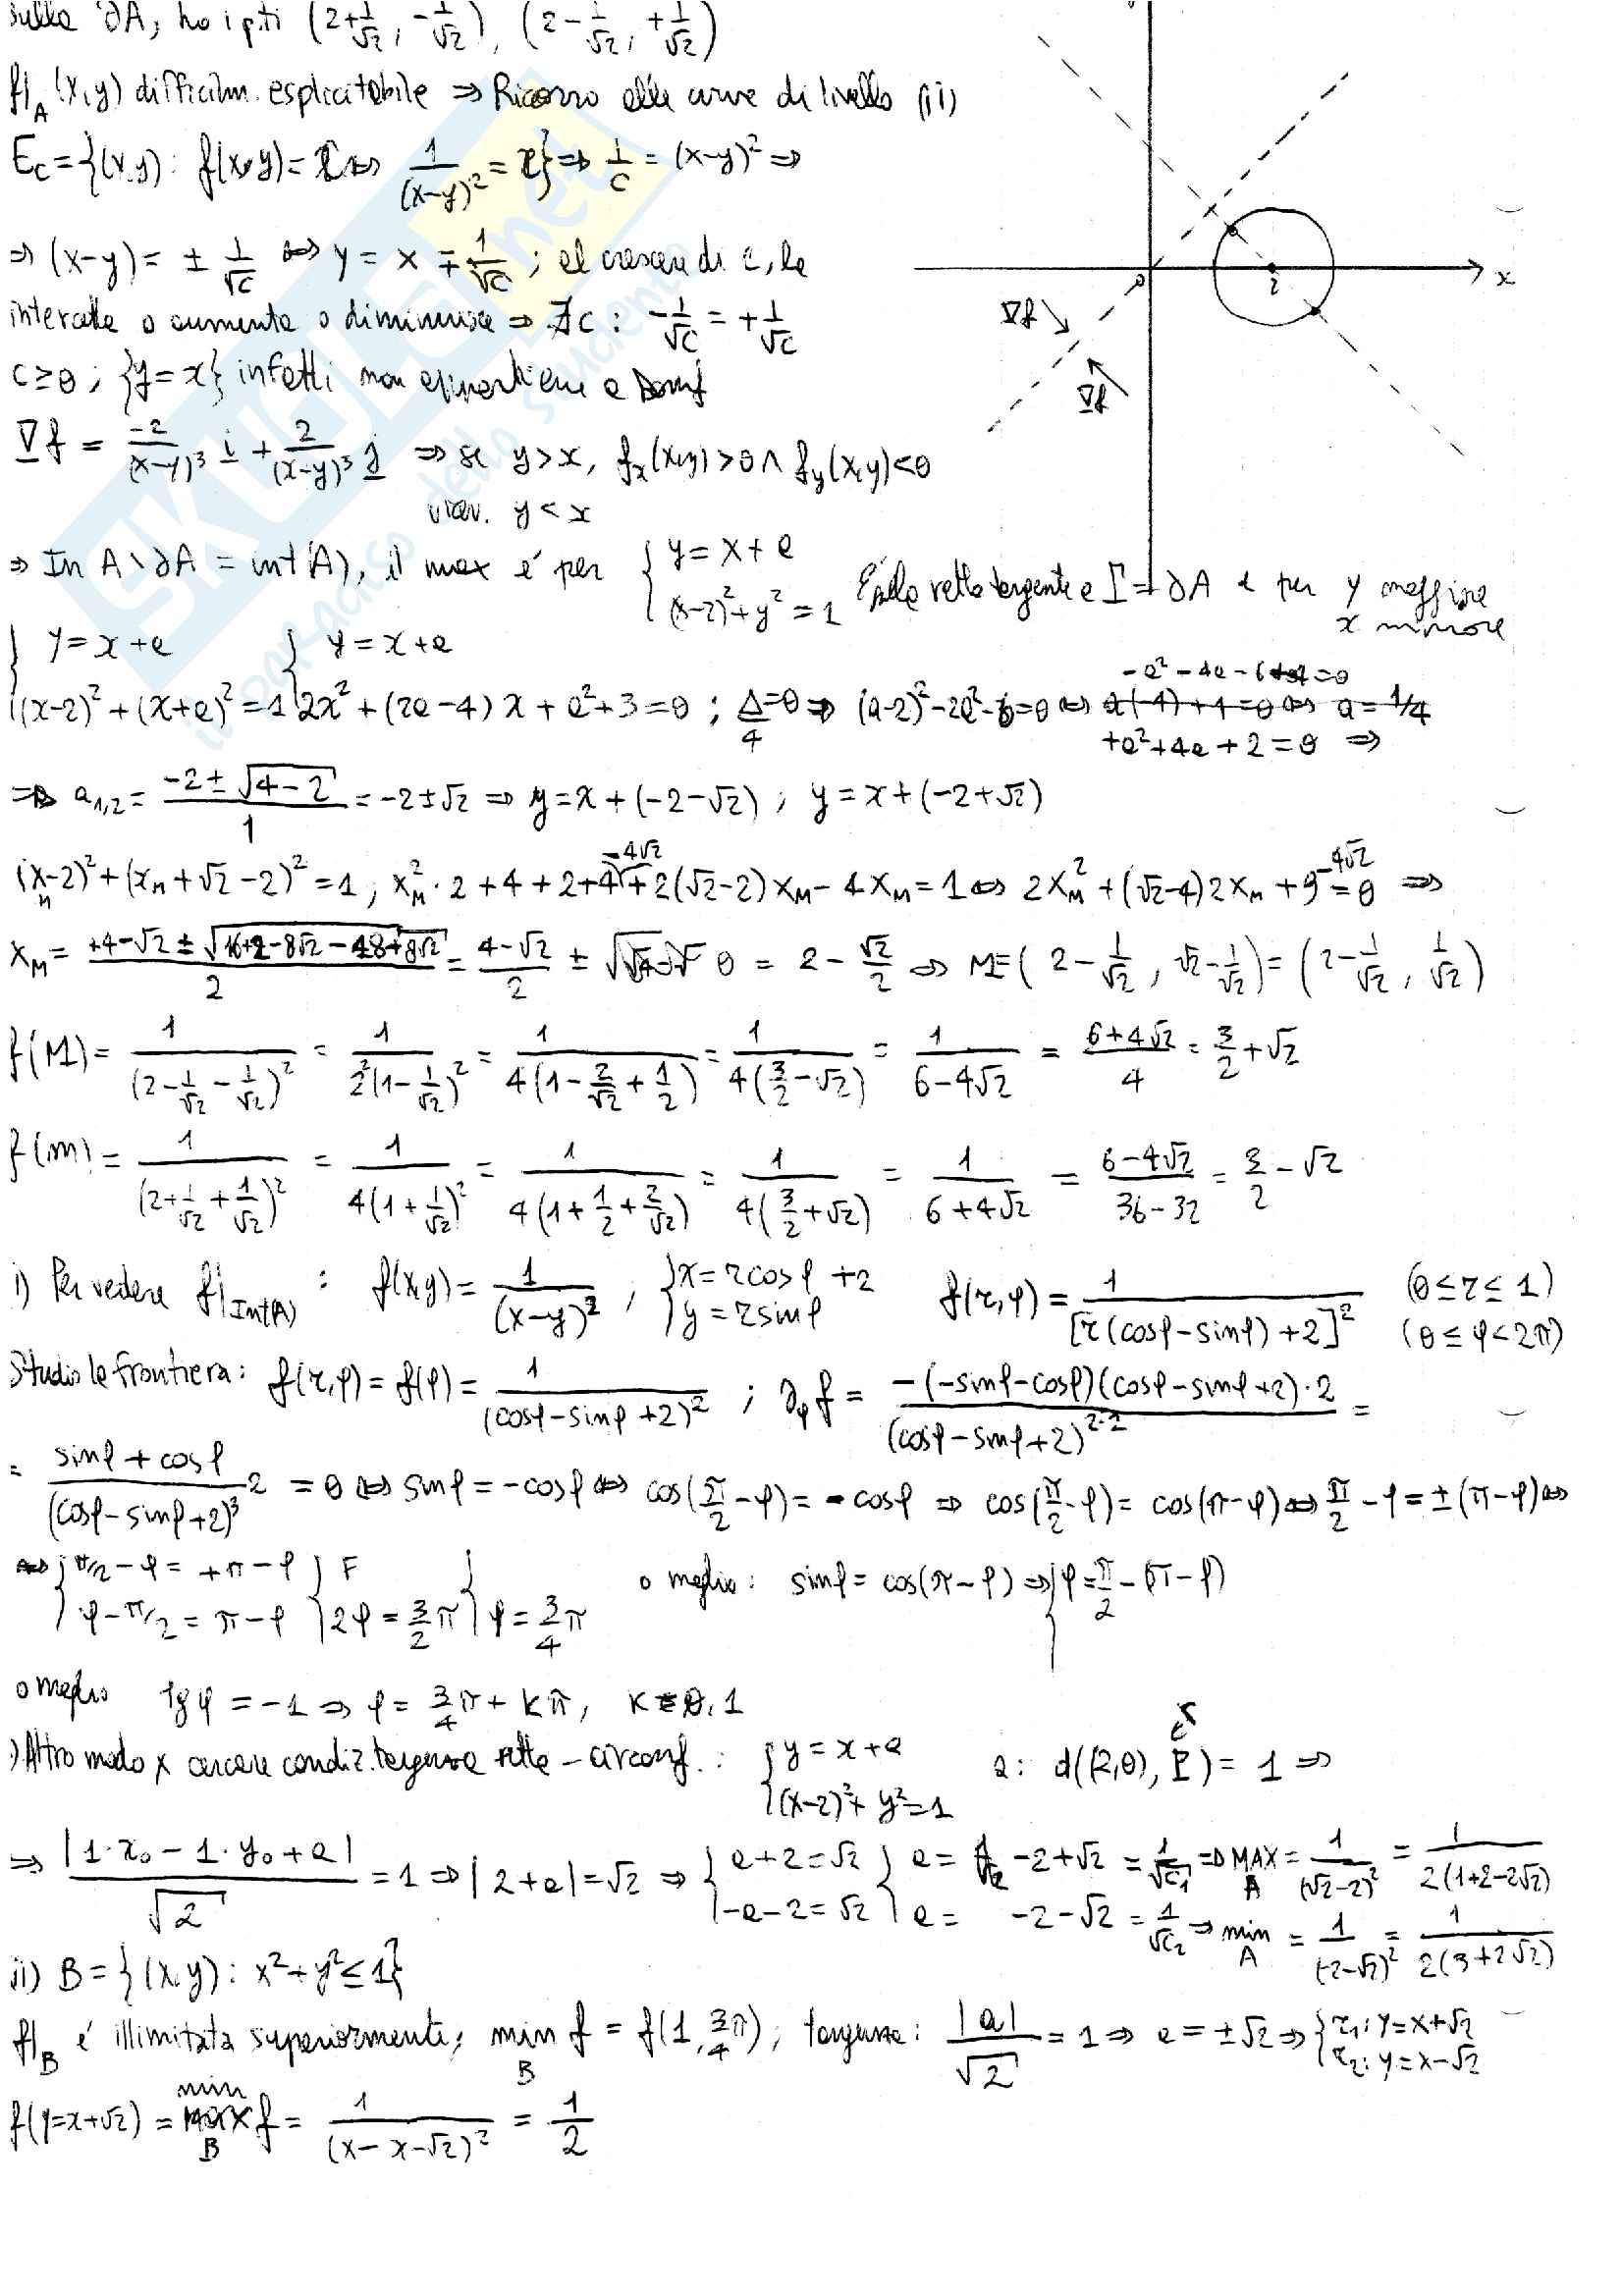 sulla ∂A, ho i pti (2+1/√2, -1/√2), (2-1/√2, +1/√2)
f|_A (x,y) difficilm. esplicitabile ⇒ Ricorro alle curve di livello (ii)
E_c = {(x,y): f(x,y) = c ⇔ 1/(x-y)² = c} ⇒ 1/c = (x-y)² ⇒
⇒ (x-y) = ± 1/√c ⇔ y = x ∓ 1/√c ; al crescere di c, le
intercette o aumenta o diminuisce ⇒ ∄c : -1/√c = +1/√c
c ≥ 0 ; {y=x} infatti non appartiene a Domf
∇f = -2/(x-y)³ i + 2/(x-y)³ j ⇒ se y>x, f_x(x,y)>0 ∧ f_y(x,y)<0
vicev. y < x
0 2 x
∇f
∇f
⇒ In A\∂A = int(A), il max é per { y = x + a ; (x-2)² + y² = 1 É alla retta tangente a Γ = ∂A e per y maggiore
x minore
{ y = x + a ; (x-2)² + (x+a)² = 1 { y = x + a ; 2x² + (2a-4)x + a² + 3 = 0 ; Δ/4 = 0 ⇒ (a-2)² - 2a² - 6 = 0 ⇔ a(-4) + 1 = 0 ⇔ a = 1/4
+a² + 4a + 2 = 0 ⇒
⇒ a_{1,2} = (-2 ± √(4-2))/1 = -2 ± √2 ⇒ y = x + (-2-√2) ; y = x + (-2+√2)
(x_M-2)² + (x_M + √2 - 2)² = 1 ; x_M²·2 + 4 + 2 + 4 - 4√2 + 2(√2-2)x_M - 4x_M = 1 ⇔ 2x_M² + (√2-4)2x_M + 9 - 4√2 = 0 ⇒
x_M = (+4-√2 ± √(16+2-8√2-18+8√2))/2 = (4-√2)/2 ± 0 = 2 - √2/2 ⇒ M = (2-1/√2, √2-1/√2) = (2-1/√2, 1/√2)
f(M) = 1/(2-1/√2-1/√2)² = 1/(2²(1-1/√2)²) = 1/(4(1-2/√2+1/2)) = 1/(4(3/2-√2)) = 1/(6-4√2) = (6+4√2)/4 = 3/2+√2
f(m) = 1/(2+1/√2+1/√2)² = 1/(4(1+1/√2)²) = 1/(4(1+1/2+2/√2)) = 1/(4(3/2+√2)) = 1/(6+4√2) = (6-4√2)/(36-32) = 3/2-√2
i) Per vedere f|_Int(A) : f(x,y) = 1/(x-y)² , { x = r cosφ + 2 ; y = r sinφ f(r,φ) = 1/[r(cosφ-sinφ)+2]² (0≤r≤1) (0≤φ<2π)
Studio la frontiera: f(r,φ) = f(φ) = 1/(cosφ-sinφ+2)² ; ∂_φ f = -(-sinφ-cosφ)(cosφ-sinφ+2)·2/(cosφ-sinφ+2)^{2·2} =
= (sinφ+cosφ)/(cosφ-sinφ+2)³ 2 = 0 ⇔ sinφ = -cosφ ⇔ cos(π/2-φ) = -cosφ ⇒ cos(π/2-φ) = cos(π-φ) ⇔ π/2-φ = ±(π-φ) ⇔
⇔ { π/2-φ = +π-φ ; φ-π/2 = π-φ } { F ; 2φ = 3/2 π } { φ = 3/4 π o meglio: sinφ = cos(π-φ) ⇒ { φ = π/2 - (π-φ)
o meglio tgφ = -1 ⇒ φ = 3/4 π + kπ, k = 0,1
) Altro modo x cercare condiz. tangenza retta - circonf. : { y = x + a ; (x-2)² + y² = 1 a: d((2,0), r) = 1 ⇒
⇒ |1·x₀ - 1·y₀ + a|/√2 = 1 ⇒ |2+a| = √2 ⇒ { a+2 = √2 ; -a-2 = √2 } a = -2+√2 = 1/√c₁ ⇒ MAX_A = 1/(√2-2)² = 1/(2(1+2-2√2))
a = -2-√2 = 1/√c₂ ⇒ min_A = 1/(-2-√2)² = 1/(2(3+2√2))
ii) B = {(x,y): x²+y² ≤ 1}
f|_B é illimitata superiormente; min_B f = f(1, 3/4 π) ; tangenza: |a|/√2 = 1 ⇒ a = ±√2 ⇒ { r₁: y = x+√2 ; r₂: y = x-√2
f(y=x+√2) = min_B f = 1/(x-x-√2)² = 1/2